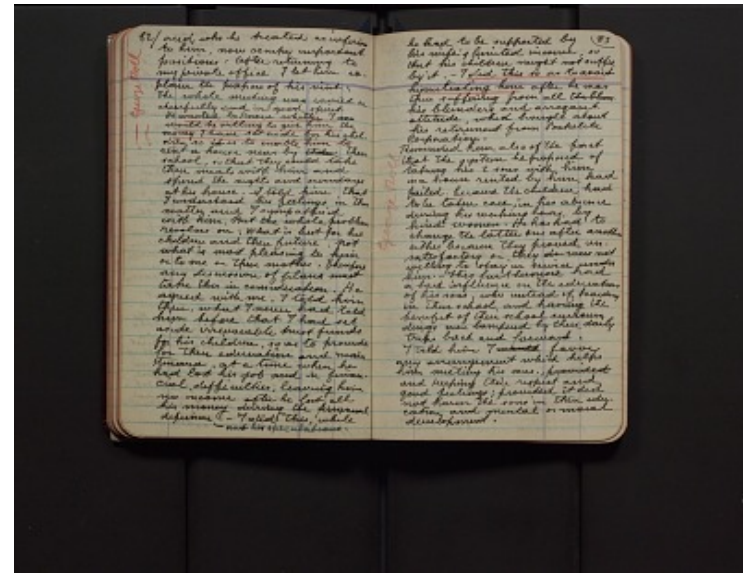 82/ and who he treated as inferior
to him, now occupy important
positions. After returning to
my private office I let him ex-
plain the purpose of his visit.
The whole meeting was carried on
cheerfully and in good spirit
He wanted to know whether I now
would be willing to give him the
money I have set aside for his chil-
dren, so as to enable him to
rent a house near by their
school, so that they could take
their meals with him and
spend the nights and sundays
at his house. I told him that
I understood his feelings in the
matter and I sympathized
with him, but the whole problem
revolves on: What is best for his
children and their future. Not
what is most pleasing to him
or to me or their mother. Therefore
any discussion of plans must
take this in consideration. He
agreed with me. I told him
then, what I never had told
him before that I had set
aside irrevocable trust funds
for his children, so as to provide
for their education and main-
tenance, at a time when he
had lost his job and in finan-
cial difficulties, leaving him
no income after he lost all
his money during the
- I told this, while
not his speculations.
George Roll
83
he had to be supported by
his wife's limited income, so
that his children might not suffer
by it. - I did this so as to avoid
humiliating him after he was
thus suffering from all the
his blunders and arrogant
attitude, which brought about
his retirement from Bakelite
Corporation.
Reminded him also of the fact
that the system he proposed of
taking his 2 sons with him
in a house rented by him, had
failed because the children had
to be taken care, in his absence
during his working hours, by
hired women. He has had to
change the latter one after another
either because they proved un-
satisfactory or they were not
willing to stay in service under
him. This furthermore had
a bad influence on the education
of his sons, who instead of boarding
in their school, and having the
benefit of their school surroun-
dings was hampered by their daily
trips back and forward.
I told him I favor
any arrangement which helps
him meeting his sons, provided
and keeping their respect and
good feelings; provided it does
not harm the sons in their edu-
cation and mental or moral
development.
George Roll